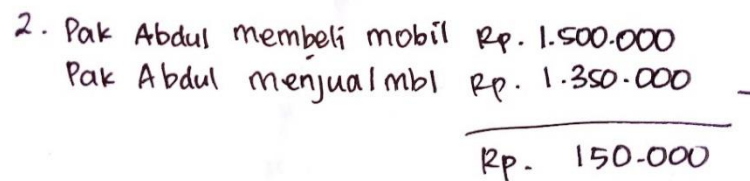 2. Pak Abdul membeli mobil Rp. 1.500.000
Pak Abdul menjual mbl Rp. 1.350.000 -
Rp. 150.000